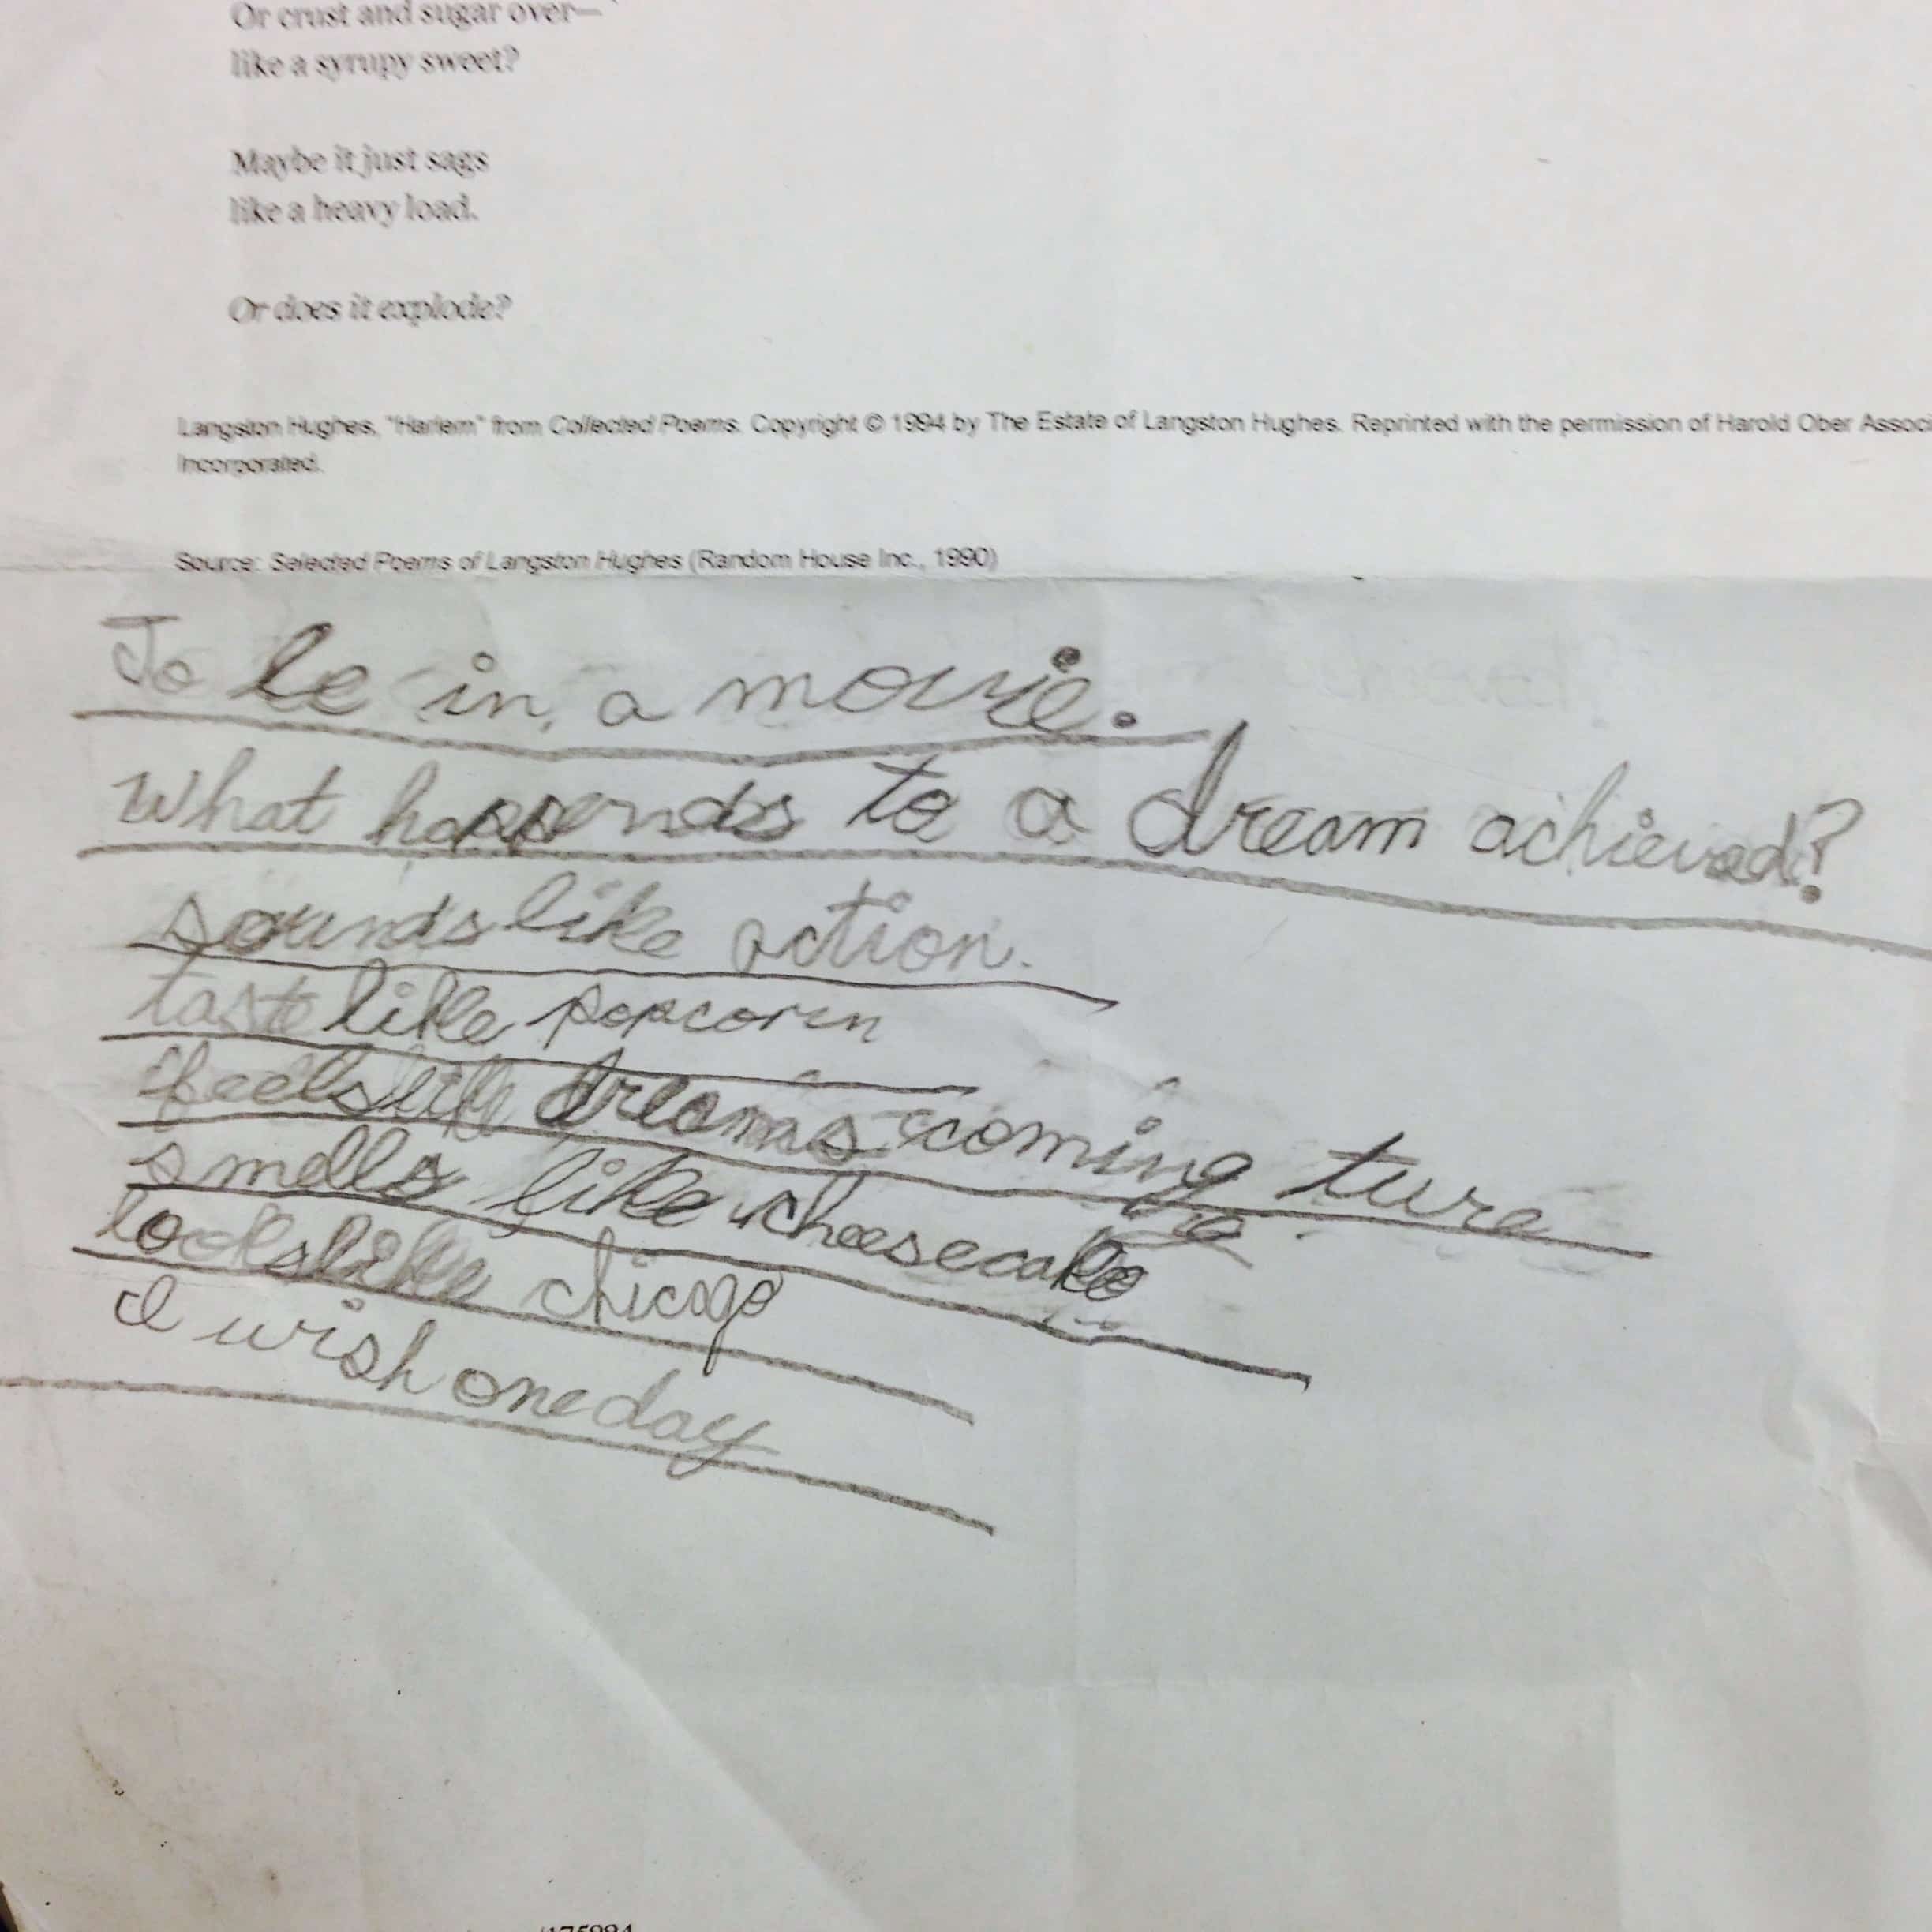 Or crust and sugar over—
like a syrupy sweet?
Maybe it just sags
like a heavy load.
Or does it explode?
Langston Hughes, "Harlem" from Collected Poems. Copyright © 1994 by The Estate of Langston Hughes. Reprinted with the permission of Harold Ober Associ
Incorporated.
Source: Selected Poems of Langston Hughes (Random House Inc., 1990)
To be in a movie.
What happends to a dream achieved?
sounds like action.
taste like popcorn
feels like dreams coming ture
smells like cheesecake
looks like chicago
I wish one day